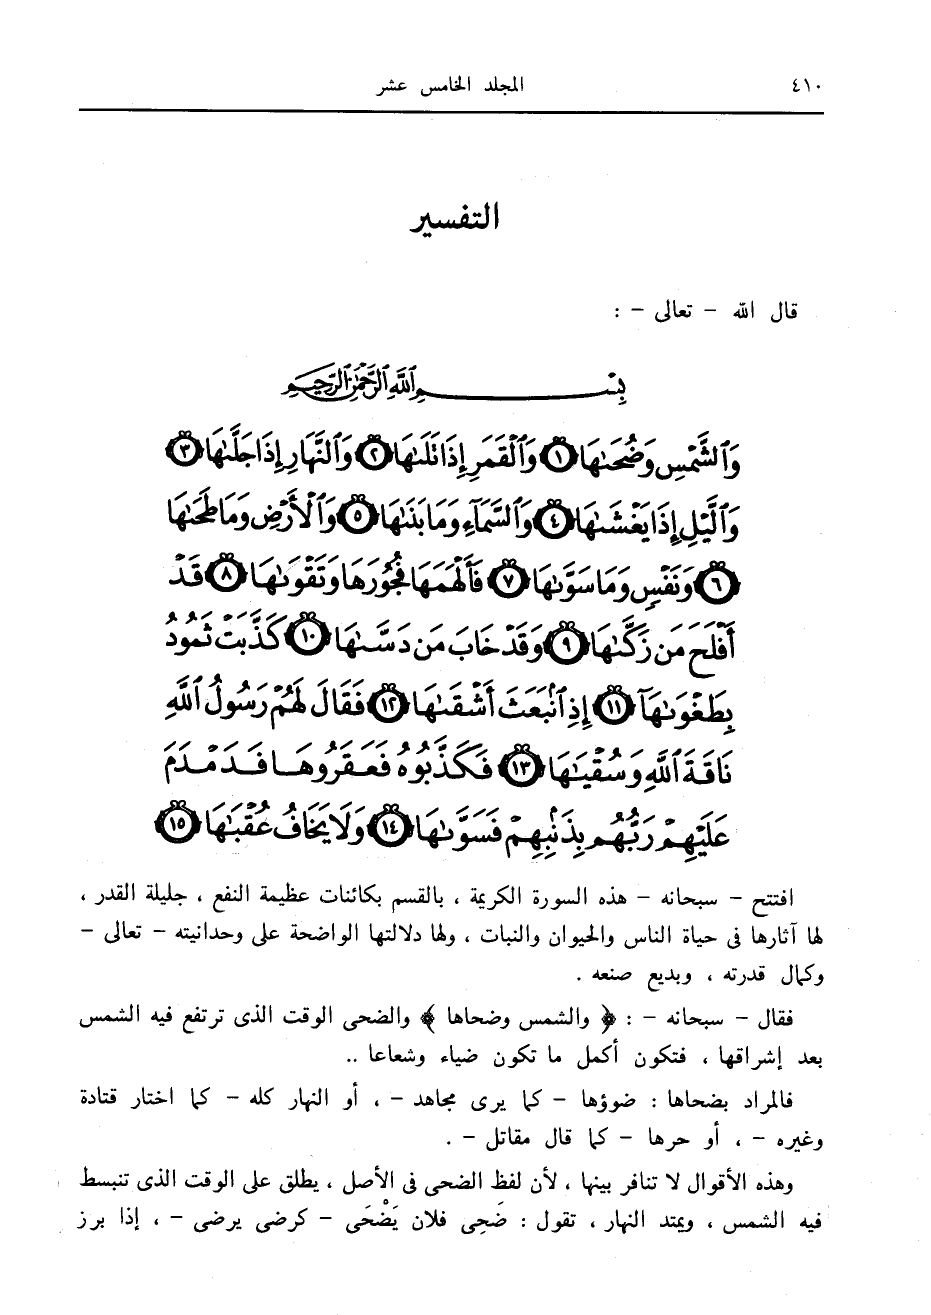 ٤١٠ المجلد الخامس عشر
التفسير
قال الله – تعالى – :
بِسْمِ اللَّهِ الرَّحْمَٰنِ الرَّحِيمِ
وَٱلشَّمْسِ وَضُحَىٰهَا ١ وَٱلْقَمَرِ إِذَا تَلَىٰهَا ٢ وَٱلنَّهَارِ إِذَا جَلَّىٰهَا ٣
وَٱلَّيْلِ إِذَا يَغْشَىٰهَا ٤ وَٱلسَّمَآءِ وَمَا بَنَىٰهَا ٥ وَٱلْأَرْضِ وَمَا طَحَىٰهَا
٦ وَنَفْسٍ وَمَا سَوَّىٰهَا ٧ فَأَلْهَمَهَا فُجُورَهَا وَتَقْوَىٰهَا ٨ قَدْ
أَفْلَحَ مَن زَكَّىٰهَا ٩ وَقَدْ خَابَ مَن دَسَّىٰهَا ١٠ كَذَّبَتْ ثَمُودُ
بِطَغْوَىٰهَآ ١١ إِذِ ٱنۢبَعَثَ أَشْقَىٰهَا ١٢ فَقَالَ لَهُمْ رَسُولُ ٱللَّهِ
نَاقَةَ ٱللَّهِ وَسُقْيَٰهَا ١٣ فَكَذَّبُوهُ فَعَقَرُوهَا فَدَمْدَمَ
عَلَيْهِمْ رَبُّهُم بِذَنۢبِهِمْ فَسَوَّىٰهَا ١٤ وَلَا يَخَافُ عُقْبَٰهَا ١٥
افتتح – سبحانه – هذه السورة الكريمة ، بالقسم بكائنات عظيمة النفع ، جليلة القدر ،
لها آثارها فى حياة الناس والحيوان والنبات ، ولها دلالتها الواضحة على وحدانيته – تعالى –
وكمال قدرته ، وبديع صنعه .
فقال – سبحانه – : ﴿ والشمس وضحاها ﴾ والضحى الوقت الذى ترتفع فيه الشمس
بعد إشراقها ، فتكون أكمل ما تكون ضياء وشعاعا ..
فالمراد بضحاها : ضوؤها – كما يرى مجاهد – ، أو النهار كله – كما اختار قتادة
وغيره – ، أو حرها – كما قال مقاتل – .
وهذه الأقوال لا تنافر بينها ، لأن لفظ الضحى فى الأصل ، يطلق على الوقت الذى تنبسط
فيه الشمس ، ويمتد النهار ، تقول : ضَحِى فلان يَضْحَى – كرضى يرضى – ، إذا برز